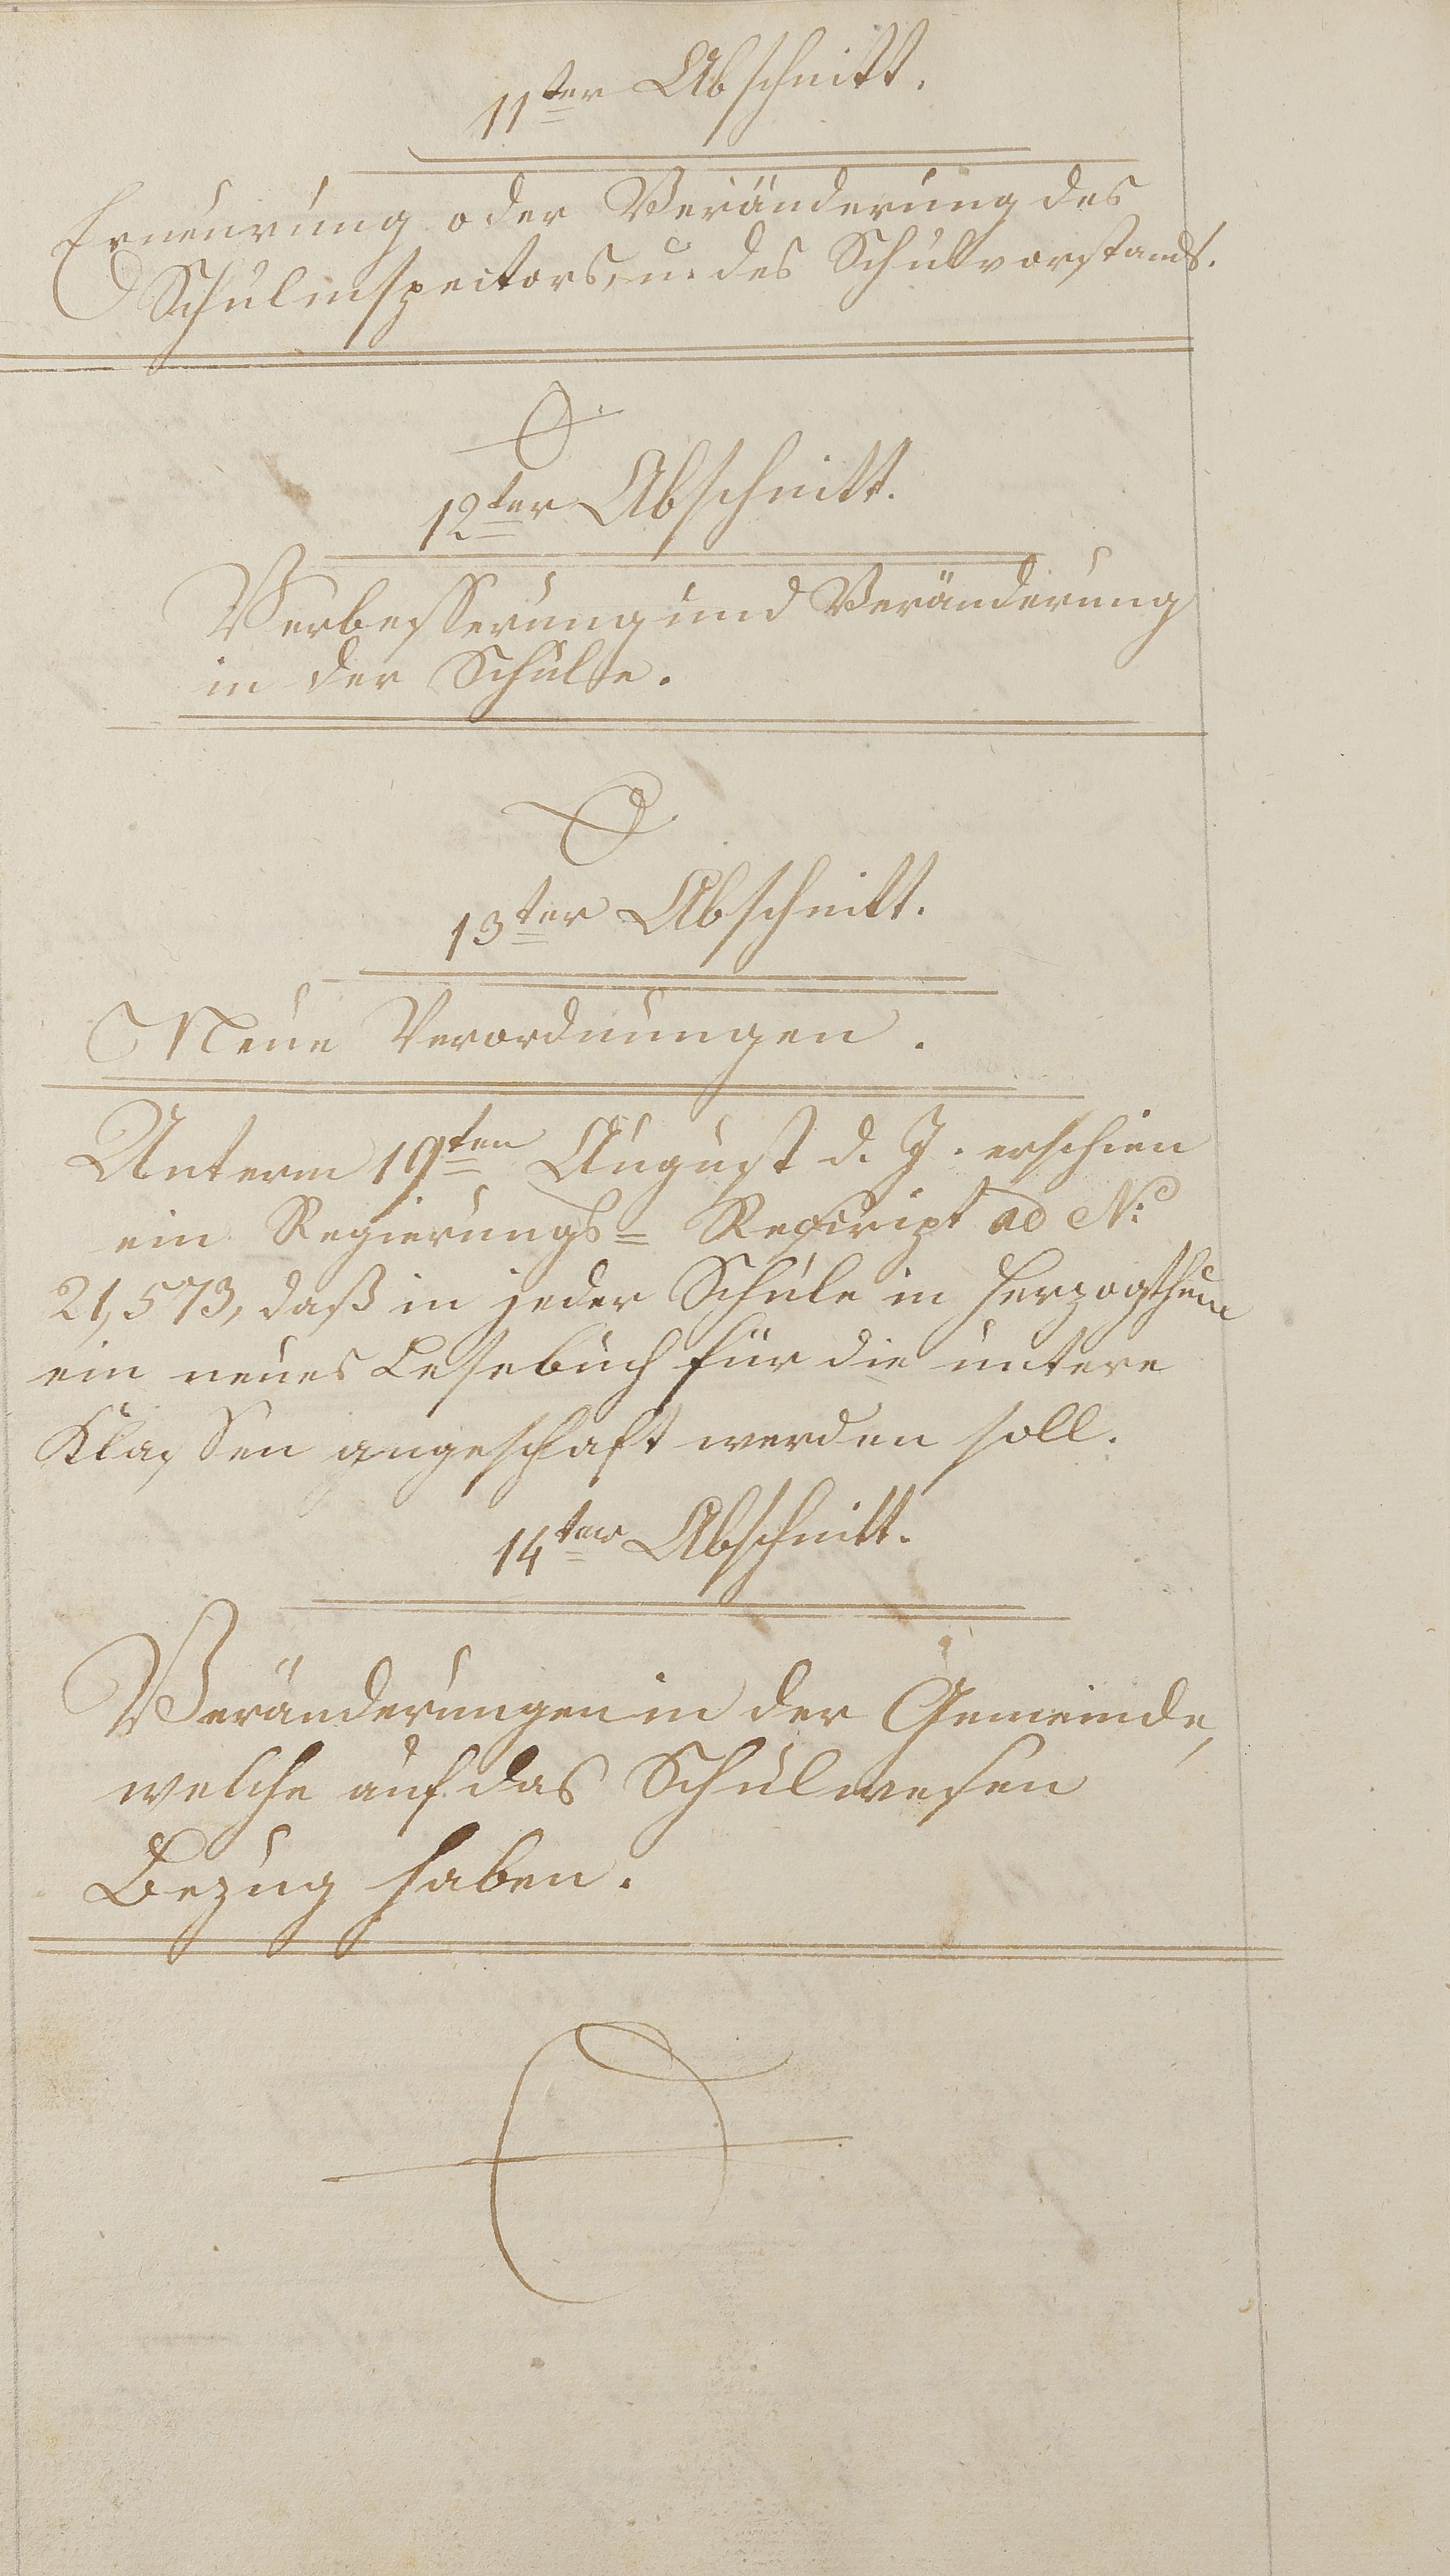 11ter Abschnitt.
Erneurung oder Veränderung des
Schulinspectors, u. des Schulvorstands.
12ter Abschnitt.
Verbesserung und Veränderung
in der Schule.
13ter Abschnitt.
Neue Verordnungen.
Unterm 19ten August d. J. erschien
ein Regierungs= Rescript ad No
21,573, daß in jeder Schule in Herzogthum
ein neues Lesebuch für die untere
Klassen angeschaft werden soll.
14ter Abschnitt.
Veränderungen in der Gemeinde,
welche auf das Schulwesen
Bezug haben.